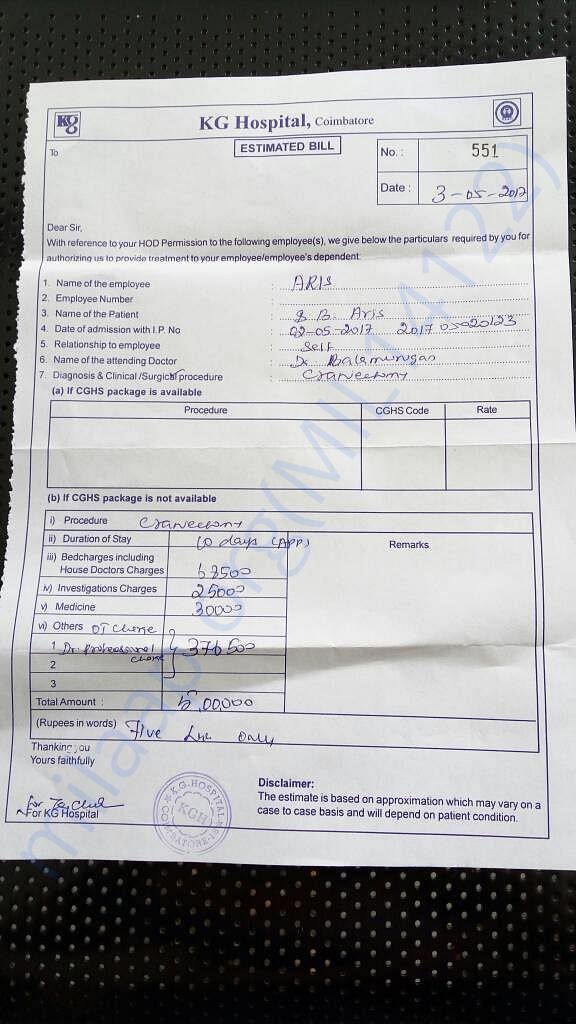 KG
KG Hospital, Coimbatore
ESTIMATED BILL
To
No. : 551
Date : 3-05-2017
Dear Sir,
With reference to your HOD Permission to the following employee(s), we give below the particulars required by you for
authorizing us to provide treatment to your employee/employee's dependent:
1. Name of the employee : ARIS
2. Employee Number :
3. Name of the Patient : B. Aris
4. Date of admission with I.P. No : 02-05-2017 2017 05020123
5. Relationship to employee : Self
6. Name of the attending Doctor : Dr. Balamurugan
7. Diagnosis & Clinical /Surgical procedure : Craneectomy
(a) If CGHS package is available
Procedure CGHS Code Rate
(b) If CGHS package is not available
i) Procedure Craneectomy
ii) Duration of Stay 10 days (APP) Remarks
iii) Bedcharges including
House Doctors Charges 68500
iv) Investigations Charges 25000
v) Medicine 30000
vi) Others OT Charge
1 Dr. professional 376500
2 charge
3
Total Amount : 5,00,000
(Rupees in words) Five Lac only
Thanking you
Yours faithfully
for
For KG Hospital
K.G. HOSPITAL
KGH
COIMBATORE
Disclaimer:
The estimate is based on approximation which may vary on a
case to case basis and will depend on patient condition.
milaap.org(MIL14122)